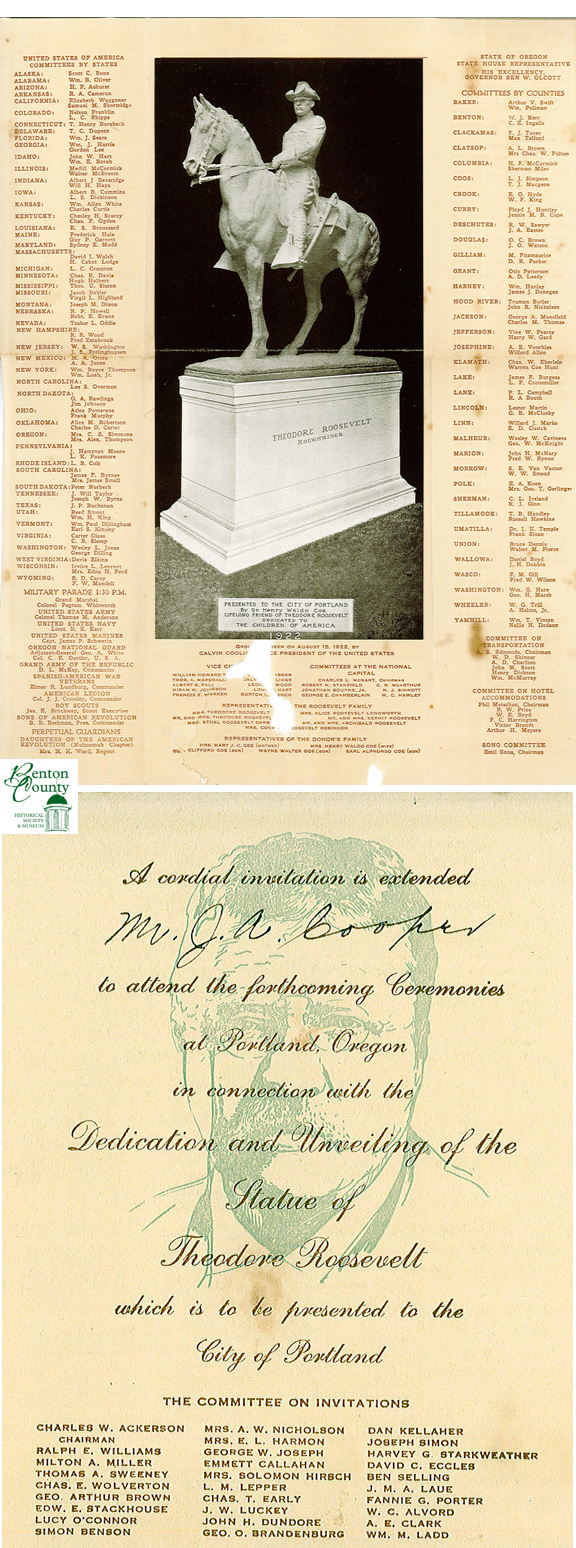 UNITED STATES OF AMERICA
COMMITTEES BY STATES
ALASKA: Scott C. Bone
ALABAMA: Wm. B. Oliver
ARIZONA: H. F. Ashurst
ARKANSAS: R. A. Cameron
CALIFORNIA: Elizabeth Waggoner
Samuel M. Shortridge
COLORADO: Nelson Franklin
L. C. Phipps
CONNECTICUT: T. Henry Rorabeck
DELAWARE: T. C. Dupont
FLORIDA: Wm. J. Sears
GEORGIA: Wm. J. Harris
Gordon Lee
IDAHO: John W. Hart
Wm. E. Borah
ILLINOIS: Medill McCormick
Walter McBroom
INDIANA: Albert J Beveridge
Will H. Hays
IOWA: Albert B. Cummins
L. S. Dickinson
KANSAS: Wm. Allen White
Charles Curtis
KENTUCKY: Chesley H. Searcy
Chas. F. Ogden
LOUISIANA: E. S. Broussard
MAINE: Frederick Hale
Guy P. Gannett
MARYLAND: Sydney E. Mudd
MASSACHUSETTS:
David I. Walsh
H. Cabot Lodge
MICHIGAN: L. C. Cramton
MINNESOTA: Chas. R. Davis
Hugh Halbert
MISSISSIPPI: Thos. U. Sisson
MISSOURI: Jacob Babler
Virgil L. Highland
MONTANA: Joseph M. Dixon
NEBRASKA: R. P. Howell
Robt. E. Evans
NEVADA: Tasker L. Oddie
NEW HAMPSHIRE:
R. B. Wood
Fred Estabrook
NEW JERSEY: W. S. Washington
J. S. Frelinghuysen
NEW MEXICO: M. A. Otero
A. A. Jones
NEW YORK: Wm. Boyce Thompson
Wm. Loeb, Jr.
NORTH CAROLINA:
Lee S. Overman
NORTH DAKOTA:
G. A. Rawlings
Jim Johnson
OHIO: Atlee Pomerene
Frank Murphy
OKLAHOMA: Alice M. Robertson
Charles D. Carter
OREGON: Mrs. C. B. Simmons
Mrs. Alex. Thompson
PENNSYLVANIA:
J. Hampton Moore
L. K. Passmore
RHODE ISLAND: L. B. Colt
SOUTH CAROLINA:
James F. Byrnes
Mrs. James Small
SOUTH DAKOTA: Peter Norbeck
TENNESSEE: J. Will Taylor
Joseph W. Byrns
TEXAS: J. P. Buchanan
UTAH: Reed Smoot
Wm. H. King
VERMONT: Wm. Paul Dillingham
Earl S. Kinsley
VIRGINIA: Carter Glass
C. B. Slemp
WASHINGTON: Wesley L. Jones
George Dilling
WEST VIRGINIA: Davis Elkins
WISCONSIN: Irvine L. Lenroot
Mrs. Edna H. Ford
WYOMING: R. D. Carey
F. W. Mondell
MILITARY PARADE 1:30 P.M.
Grand Marshal
Colonel Pegram Whitworth
UNITED STATES ARMY
Colonel Thomas M. Anderson
UNITED STATES NAVY
Lieut. R. E. Kerr
UNITED STATES MARINES
Capt. James P. Schwerin
OREGON NATIONAL GUARD
Adjutant-General Geo. A. White
Col. C. E. Dentler, U. S. A.
GRAND ARMY OF THE REPUBLIC
D. L. McKay, Commander
SPANISH-AMERICAN WAR
VETERANS
Elmer R. Lundburg, Commander
AMERICAN LEGION
Col. J. J. Crossley, Commander
BOY SCOUTS
Jas. E. Brockway, Scout Executive
SONS OF AMERICAN REVOLUTION
B. B. Beekman, Pres. Commander
PERPETUAL GUARDIANS
DAUGHTERS OF THE AMERICAN
REVOLUTION (Multnomah Chapter)
Mrs. H. H. Ward, Regent
THEODORE ROOSEVELT
ROUGHRIDER
PRESENTED TO THE CITY OF PORTLAND
By Dr. Henry Waldo Coe
LIFELONG FRIEND OF THEODORE ROOSEVELT
DEDICATED TO
THE CHILDREN OF AMERICA
1922
BROKEN ON AUGUST 15, 1922, BY
CALVIN COOL PRESIDENT OF THE UNITED STATES
VICE
COMMITTEES AT THE NATIONAL
CAPITAL
WILLIAM HOWARD
THOS. R. MARSHALL
ALBERT B. FALL
HIRAM W. JOHNSON
FRANCIS E. WARREN
CHARLES L. McNARY, CHAIRMAN
ROBERT N. STANFIELD
C. N. McARTHUR
JONATHAN BOURNE, JR.
N. J. SINNOTT
GEORGE E. CHAMBERLAIN
W. C. HAWLEY
REPRESENTATI THE ROOSEVELT FAMILY
MRS. THEODORE ROOSEVELT
MRS. ALICE ROOSEVELT LONGWORTH
MR. AND MRS. THEODORE ROOSE
MR. AND MRS. KERMIT ROOSEVELT
MRS. ETHEL ROOSEVELT DERB
MR. AND MRS. ARCHIBALD ROOSEVELT
MRS. ROOSEVELT ROBINSON
REPRESENTATIVES OF THE DONOR'S FAMILY
MRS. MARY J. C. COE (MOTHER) MRS. HENRY WALDO COE (WIFE)
CLIFFORD COE (SON) WAYNE WALTER COE (SON) EARL ALPHONSO COE (SON)
STATE OF OREGON
STATE HOUSE REPRESENTATIVE
HIS EXCELLENCY,
GOVERNOR BEN W. OLCOTT
COMMITTEES BY COUNTIES
BAKER: Arthur V. Swift
Wm. Pullman
BENTON: W. J. Kerr
C. E. Ingalls
CLACKAMAS: F. J. Tooze
Max Telford
CLATSOP: A. L. Brown
Mrs Chas. W. Fulton
COLUMBIA: H. F. McCormick
Sherman Miles
COOS: L. J. Simpson
T. J. Macgenn
CROOK: E. O. Hyde
W. F. King
CURRY: Floyd J. Huntley
Jennie M. B. Cope
DESCHUTES: R. W. Sawyer
J. A. Eastes
DOUGLAS: O. C. Brown
J. Watson
GILLIAM: M. Fitzmaurice
D. R. Parker
GRANT: Oris Patterson
A. D. Leedy
HARNEY: Wm. Hanley
James J. Donegan
HOOD RIVER: Truman Butler
John R. Nickelsen
JACKSON: George A. Mansfield
Charles M. Thomas
JEFFERSON: Vine W. Pearce
Harry W. Gard
JOSEPHINE: A. E. Voorhies
Wilford Allen
KLAMATH: Chas. W. Eberlein
Warren Coe Hunt
LAKE: James F. Burgess
L. F. Cronemiller
LANE: P. L. Campbell
R. A Booth
LINCOLN: Lester Martin
O. B. McClusky
LINN: Willard J. Marks
E. D. Cusick
MALHEUR: Wesley W. Caviness
Geo. W. McKnight
MARION: John H. McNary
Fred W. Bynon
MORROW: S. E. Van Vactor
W. W. Smead
POLK: E. A. Koen
Mrs. Geo. T. Gerlinger
SHERMAN: C. L. Ireland
R. J. Ginn
TILLAMOOK: T. B. Handley
Russell Hawkins
UMATILLA: Dr. I. U. Temple
Frank Sloan
UNION: Bruce Dennis
Walter M. Pierce
WALLOWA: Daniel Boyd
J. H. Dobbin
WASCO: F. M. Gill
Fred W. Wilson
WASHINGTON: Wm. G. Hare
Geo. H. Marsh
WHEELER: W. G. Trill
A. Helms, Jr.
YAMHILL: Wm. T. Vinton
Nellis N. Dodson
COMMITTEE ON
TRANSPORTATION
A. S. Edmonds, Chairman
W. D. Skinner
A. D. Charlton
John M. Scott
Henry Dickson
Wm. McMurray
COMMITTEE ON HOTEL
ACCOMMODATIONS
Phil Metschan, Chairman
R. W. Price
W. E. Boyd
F. C. Harrington
Victor Brandt
Arthur H. Meyers
SONG COMMITTEE
Emil Enna, Chairman
Benton
County
HISTORICAL
SOCIETY
& MUSEUM
A cordial invitation is extended
Mr. J. A. Cooper
to attend the forthcoming Ceremonies
at Portland, Oregon
in connection with the
Dedication and Unveiling of the
Statue of
Theodore Roosevelt
which is to be presented to the
City of Portland
THE COMMITTEE ON INVITATIONS
CHARLES W. ACKERSON
CHAIRMAN
RALPH E. WILLIAMS
MILTON A. MILLER
THOMAS A. SWEENEY
CHAS. E. WOLVERTON
GEO. ARTHUR BROWN
EDW. E. STACKHOUSE
LUCY O'CONNOR
SIMON BENSON
MRS. A. W. NICHOLSON
MRS. E. L. HARMON
GEORGE W. JOSEPH
EMMETT CALLAHAN
MRS. SOLOMON HIRSCH
L. M. LEPPER
CHAS. T. EARLY
J. W. LUCKEY
JOHN H. DUNDORE
GEO. O. BRANDENBURG
DAN KELLAHER
JOSEPH SIMON
HARVEY G. STARKWEATHER
DAVID C. ECCLES
BEN SELLING
J. M. A. LAUE
FANNIE G. PORTER
W. C. ALVORD
A. E. CLARK
WM. M. LADD